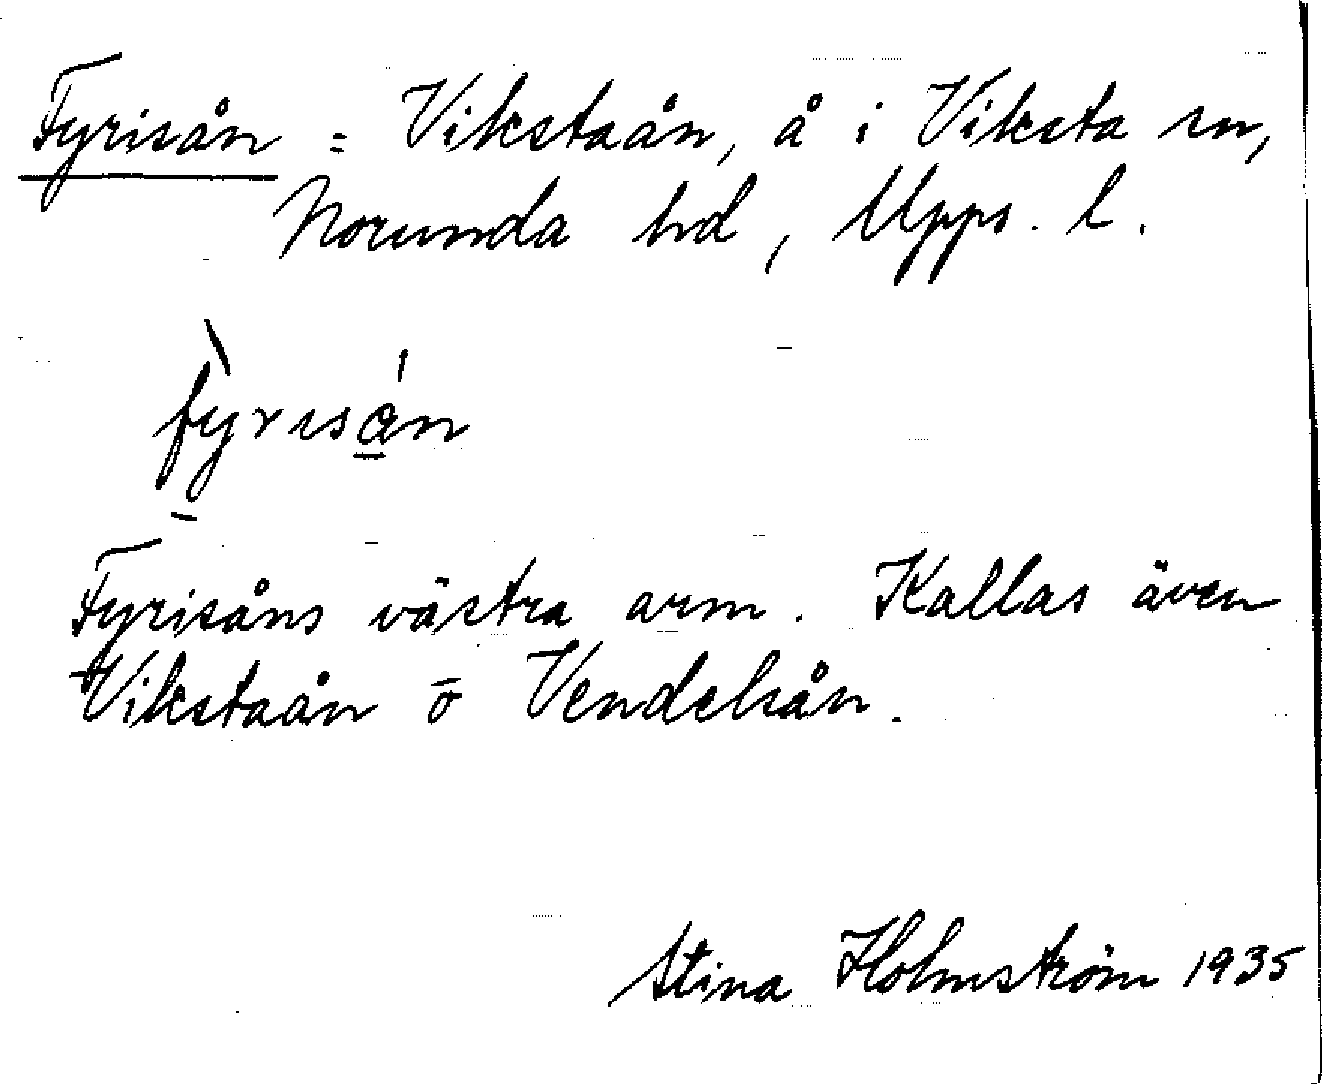 Fyrisån = Vikstaån, å i Viksta sn,
Norunda hd, Upps. l.
fỳrisán
Fyrisåns västra arm. Kallas även
Vikstaån o Vendelsån.
Stina Holmström 1935